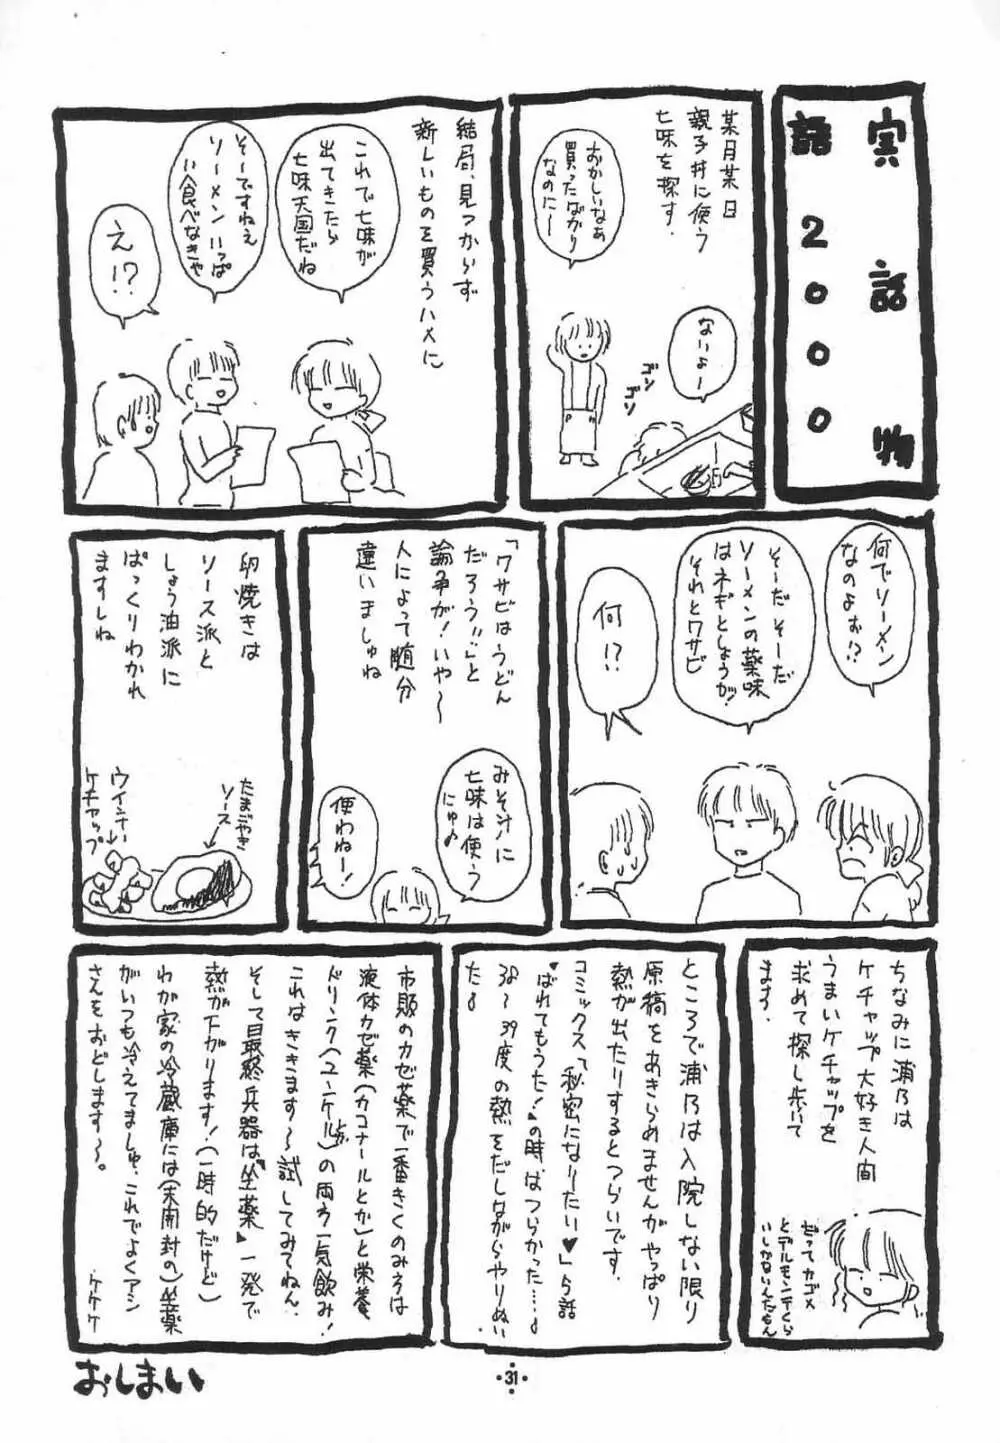 実話物
語2000
某月某日
親子丼に使う
七味を探す.
おかしいなぁ
買ったばかり
なのに〜
ないよー
ゴン
ゴソ
結局、見つからず
新しいものを買うハメに
これで七味が
出てきたら
七味天国だね
そーですねぇ
ソーメンいっぱ
い食べなきゃ
え!?
何でソーメン
なのよぉ!?
そーだそーだ
ソーメンの薬味
はネギとしょうが!
それとワサビ
何!?
「ワサビはうどん
だろう!」と
論争が!いや〜
人によって随分
違いましゅね
みそ汁に
七味は使う
にゅ♪
使わねー!
卵焼きは
ソース派と
しょう油派に
ぱっくりわかれ
ますしね
たまごやき
ソース
ウインナー
ケチャップ
ちなみに浦乃は
ケチャップ大好き人間
うまいケチャップを
求めて探し歩いて
ます.
だってカゴメ
とデルモンテくら
いしかないんだもん
ところで浦乃は入院しない限り
原稿をあきらめませんがやっぱり
熱が出たりするとつらいです.
コミックス「秘密になりたい♥」ら話
♥ばれてもうた!♥の時はつらかった…♪
38〜39度の熱をだしながらやりぬい
た♪
市販のカゼ薬で一番きくのみろは
液体カゼ薬(カコナールとか)と栄養
ドリンク(ユンケルとか)の両方一気飲み!
これはききます〜試してみてねん.
そして最終兵器は♥坐薬♥一発で
熱が下がります!(一時的だけど)
わが家の冷蔵庫には(未開封の)坐薬
がいつも冷えてましゅ.これでよくアシ
さんをおどします〜。
ケケケ
おしまい
31